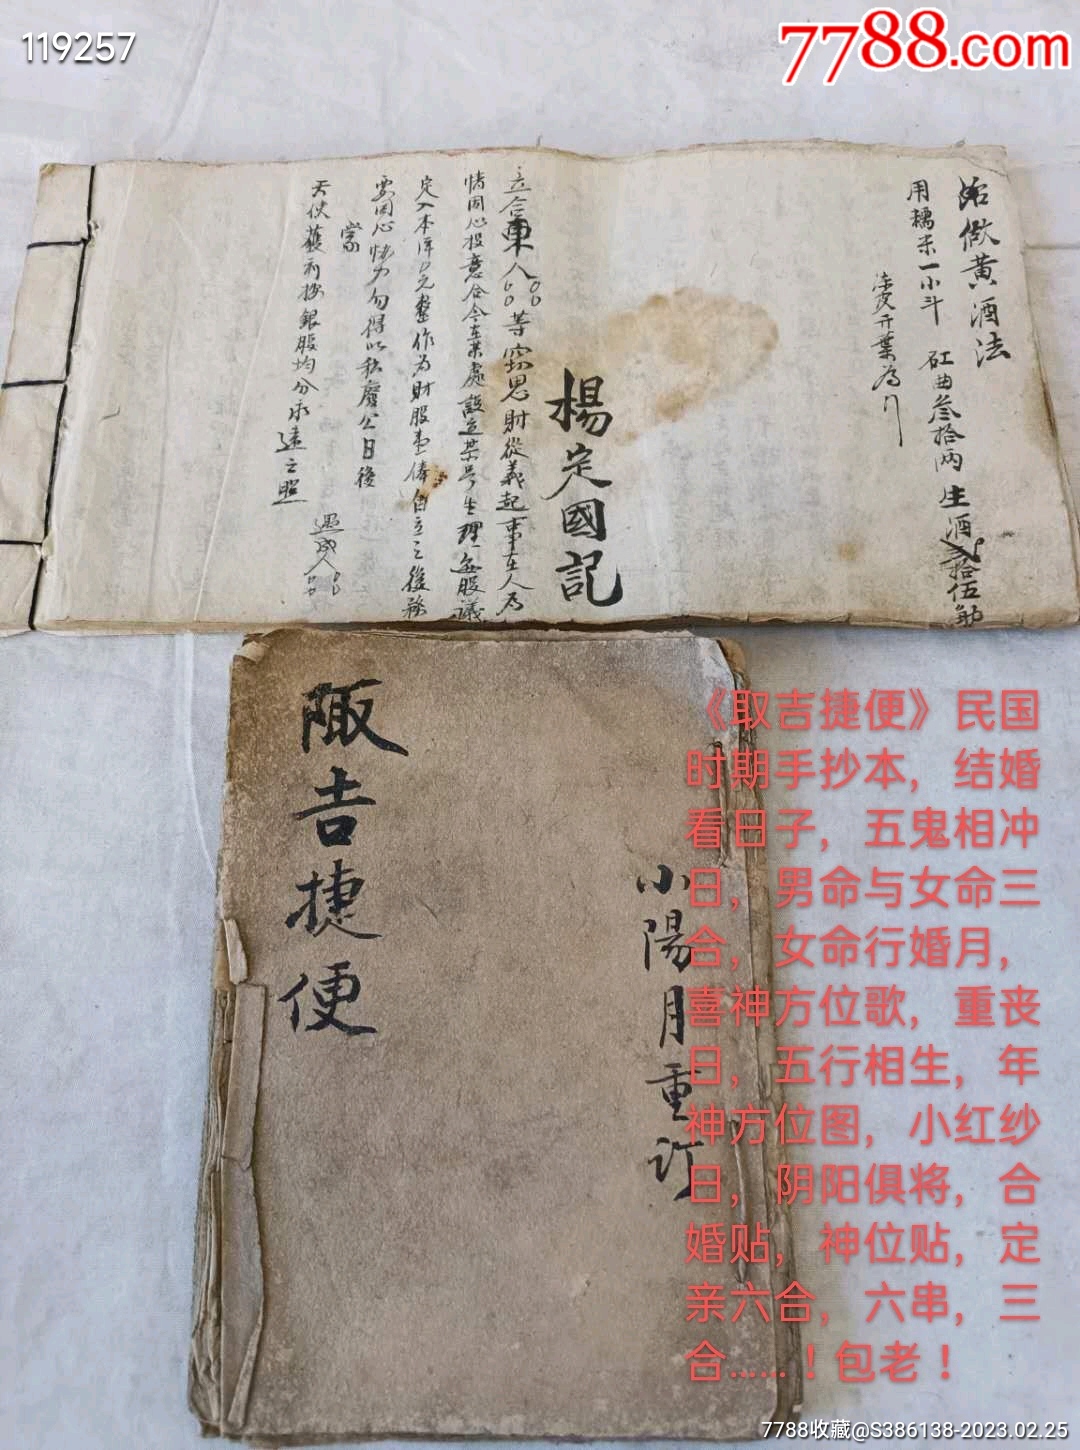 119257
7788.com
治做黄酒法
用糯米一小斗 紅曲叁拾两 生酒入拾伍觔
楊定國記
立合東人〇〇〇〇等窃思財從義起事在人为
情同心投意合今在某處設立某号生理每股議
定入本洋〇元整作为財股
自立之後務
要同心协力勿得以私廢公日後
蒙
天使獲利按銀股均分永遠之照
取吉捷便
小陽月重订
《取吉捷便》民国
时期手抄本，结婚
看日子，五鬼相冲
日，男命与女命三
合，女命行婚月，
喜神方位歌，重丧
日，五行相生，年
神方位图，小红纱
日，阴阳俱将，合
婚贴，神位贴，定
亲六合，六串，三
合......！包老！
7788收藏@S386138-2023.02.25